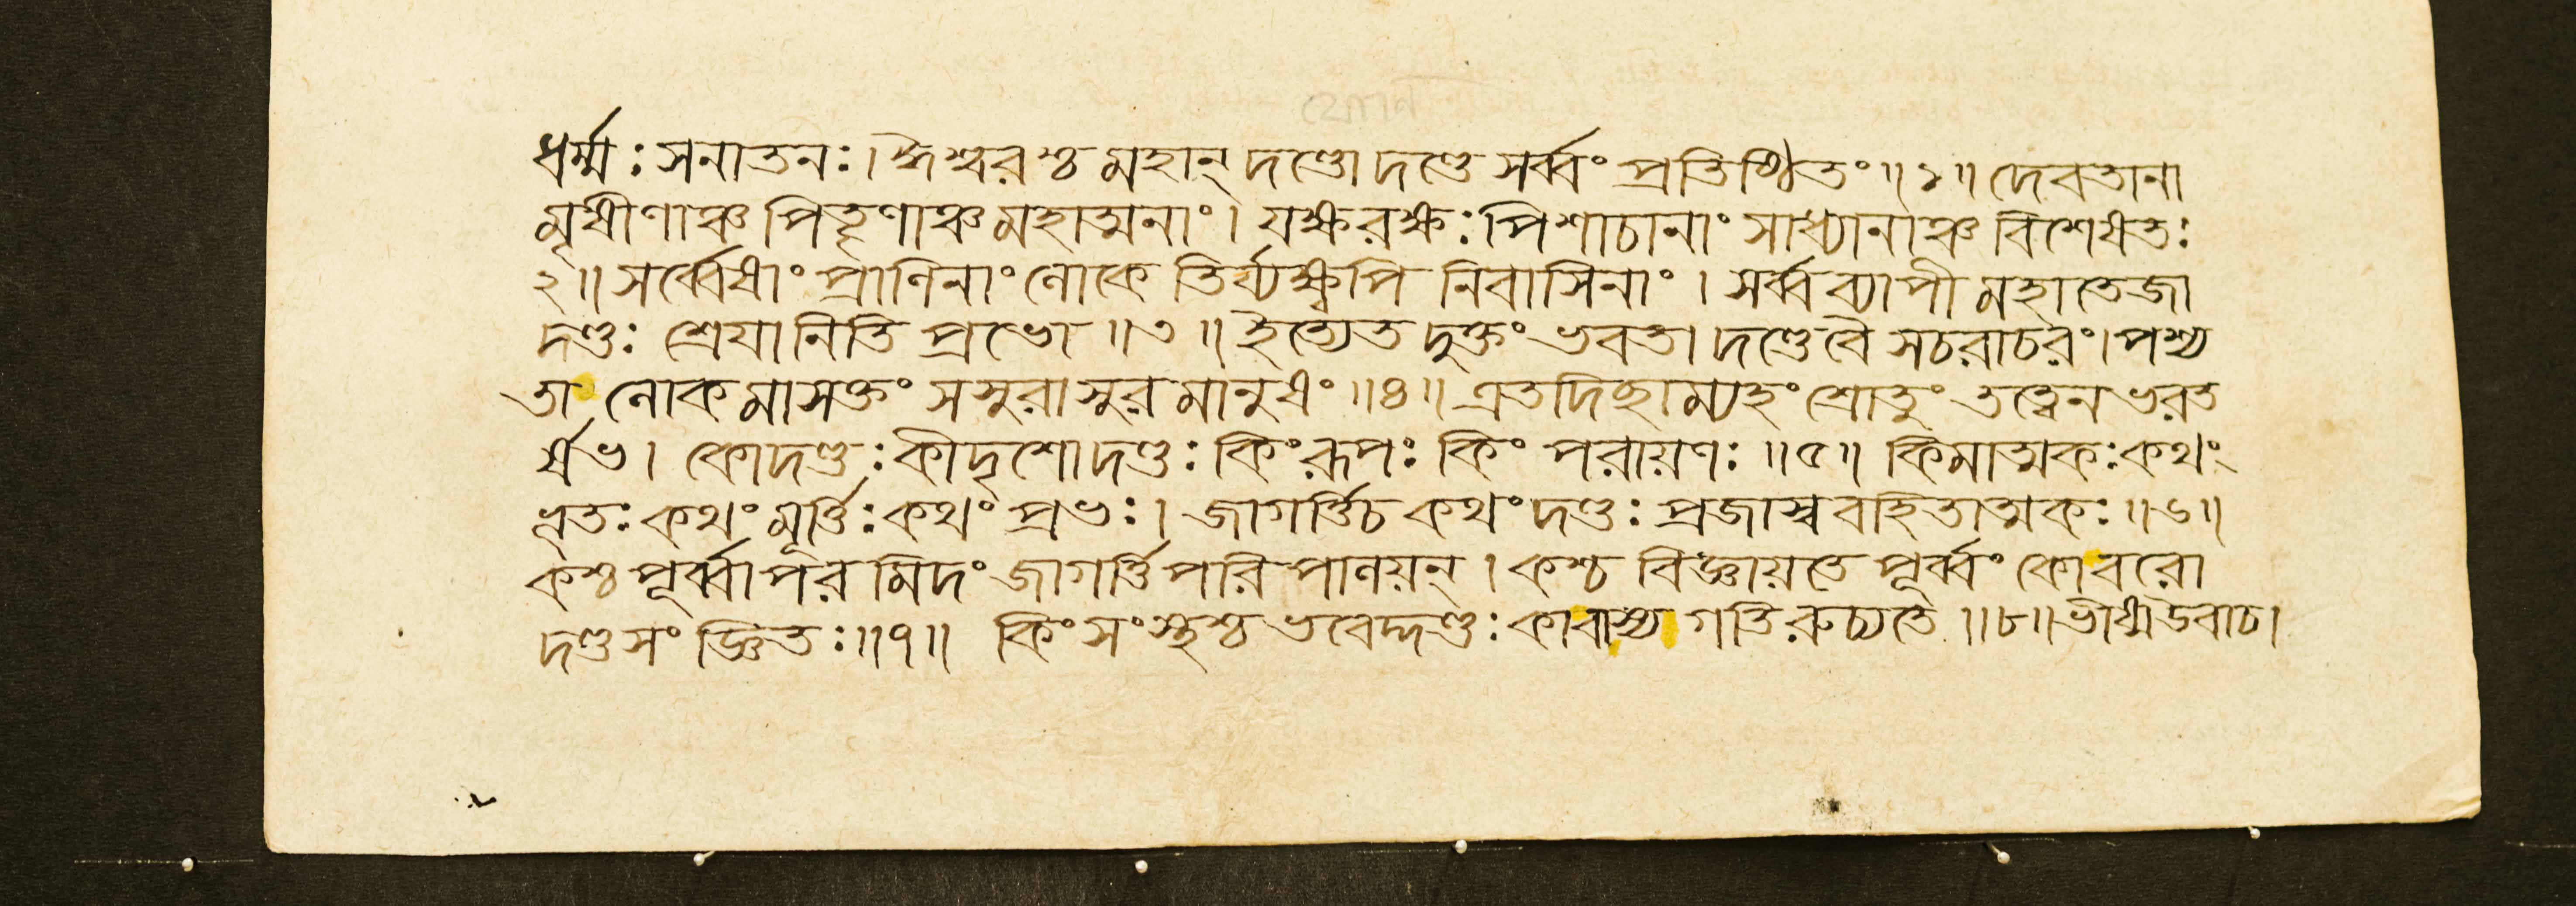 ধর্ম্মঃ সনাতনঃ। ঈশ্বরশ্চ মহান্ দণ্ডো দণ্ডে সর্ব্বং প্রতিষ্ঠিতং॥১॥ দেবতানা
মৃষীণাঞ্চ পিতৄণাঞ্চ মহাত্মনাং। যক্ষরক্ষঃপিশাচানাং সাধ্যানাঞ্চ বিশেষতঃ
২॥ সর্ব্বেষাং প্রাণিনাং লোকে তির্য্যক্ষ্বপি নিবাসিনাং। সর্ব্বব্যাপী মহাতেজা
দণ্ডঃ শ্রেযানিতি প্রভো॥৩॥ ইত্যেত দুক্তং ভবতা দণ্ডেবৈ সচরাচরং। পশ্য
তা লোকমাসক্তং সসুরাসুর মানুষং॥৪॥ এতদিছাম্যহং শ্রোতুং তত্ত্বেন ভরত
র্ষভ। কোদণ্ডঃ কীদৃশো দণ্ডঃ কিংরূপঃ কিং পরায়ণঃ॥৫॥ কিমাত্মকঃ কথং
ভূতঃ কথং মূর্ত্তিঃ কথং প্রভঃ। জাগর্ত্তিচ কথং দণ্ডঃ প্রজাস্ববহিতাত্মকঃ॥৬॥
কশ্চ পূর্ব্বাপর মিদং জাগর্ত্তি পরি পালয়ন্। কশ্চ বিজ্ঞায়তে পূর্ব্বং কোবরো
দণ্ডসংজ্ঞিতঃ॥৭॥ কিং সংস্থশ্চ ভবেদ্দণ্ডঃ কাবাস্য গতিরুচ্যতে॥৮॥ ভীষ্মউবাচ।